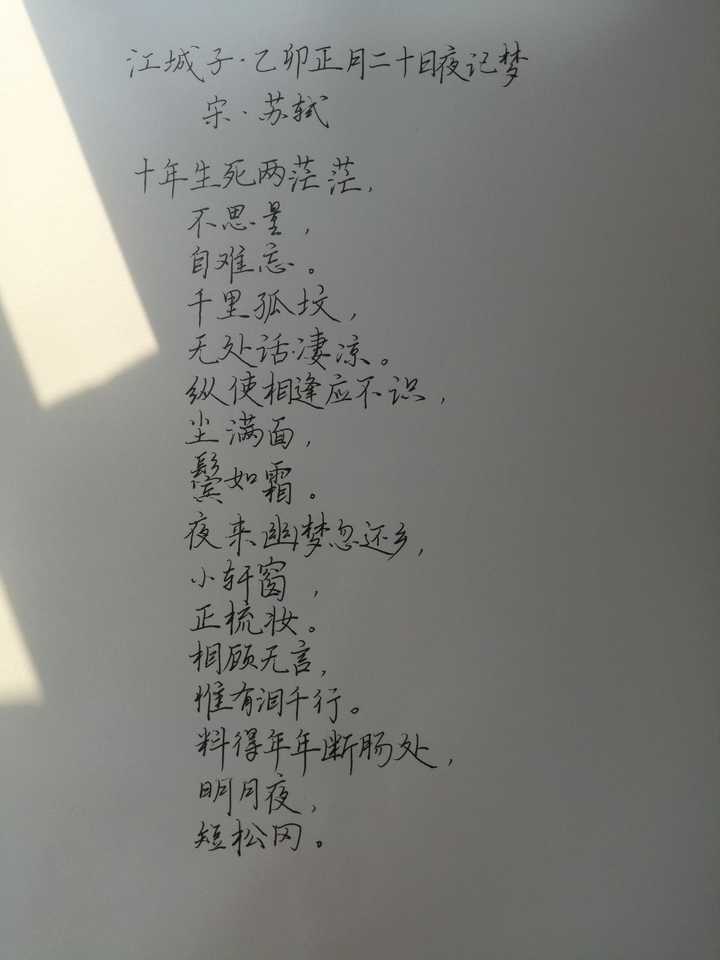 江城子·乙卯正月二十日夜记梦
宋·苏轼
十年生死两茫茫,
不思量,
自难忘。
千里孤坟,
无处话凄凉。
纵使相逢应不识,
尘满面,
鬓如霜。
夜来幽梦忽还乡,
小轩窗,
正梳妆。
相顾无言,
惟有泪千行。
料得年年断肠处,
明月夜,
短松冈。